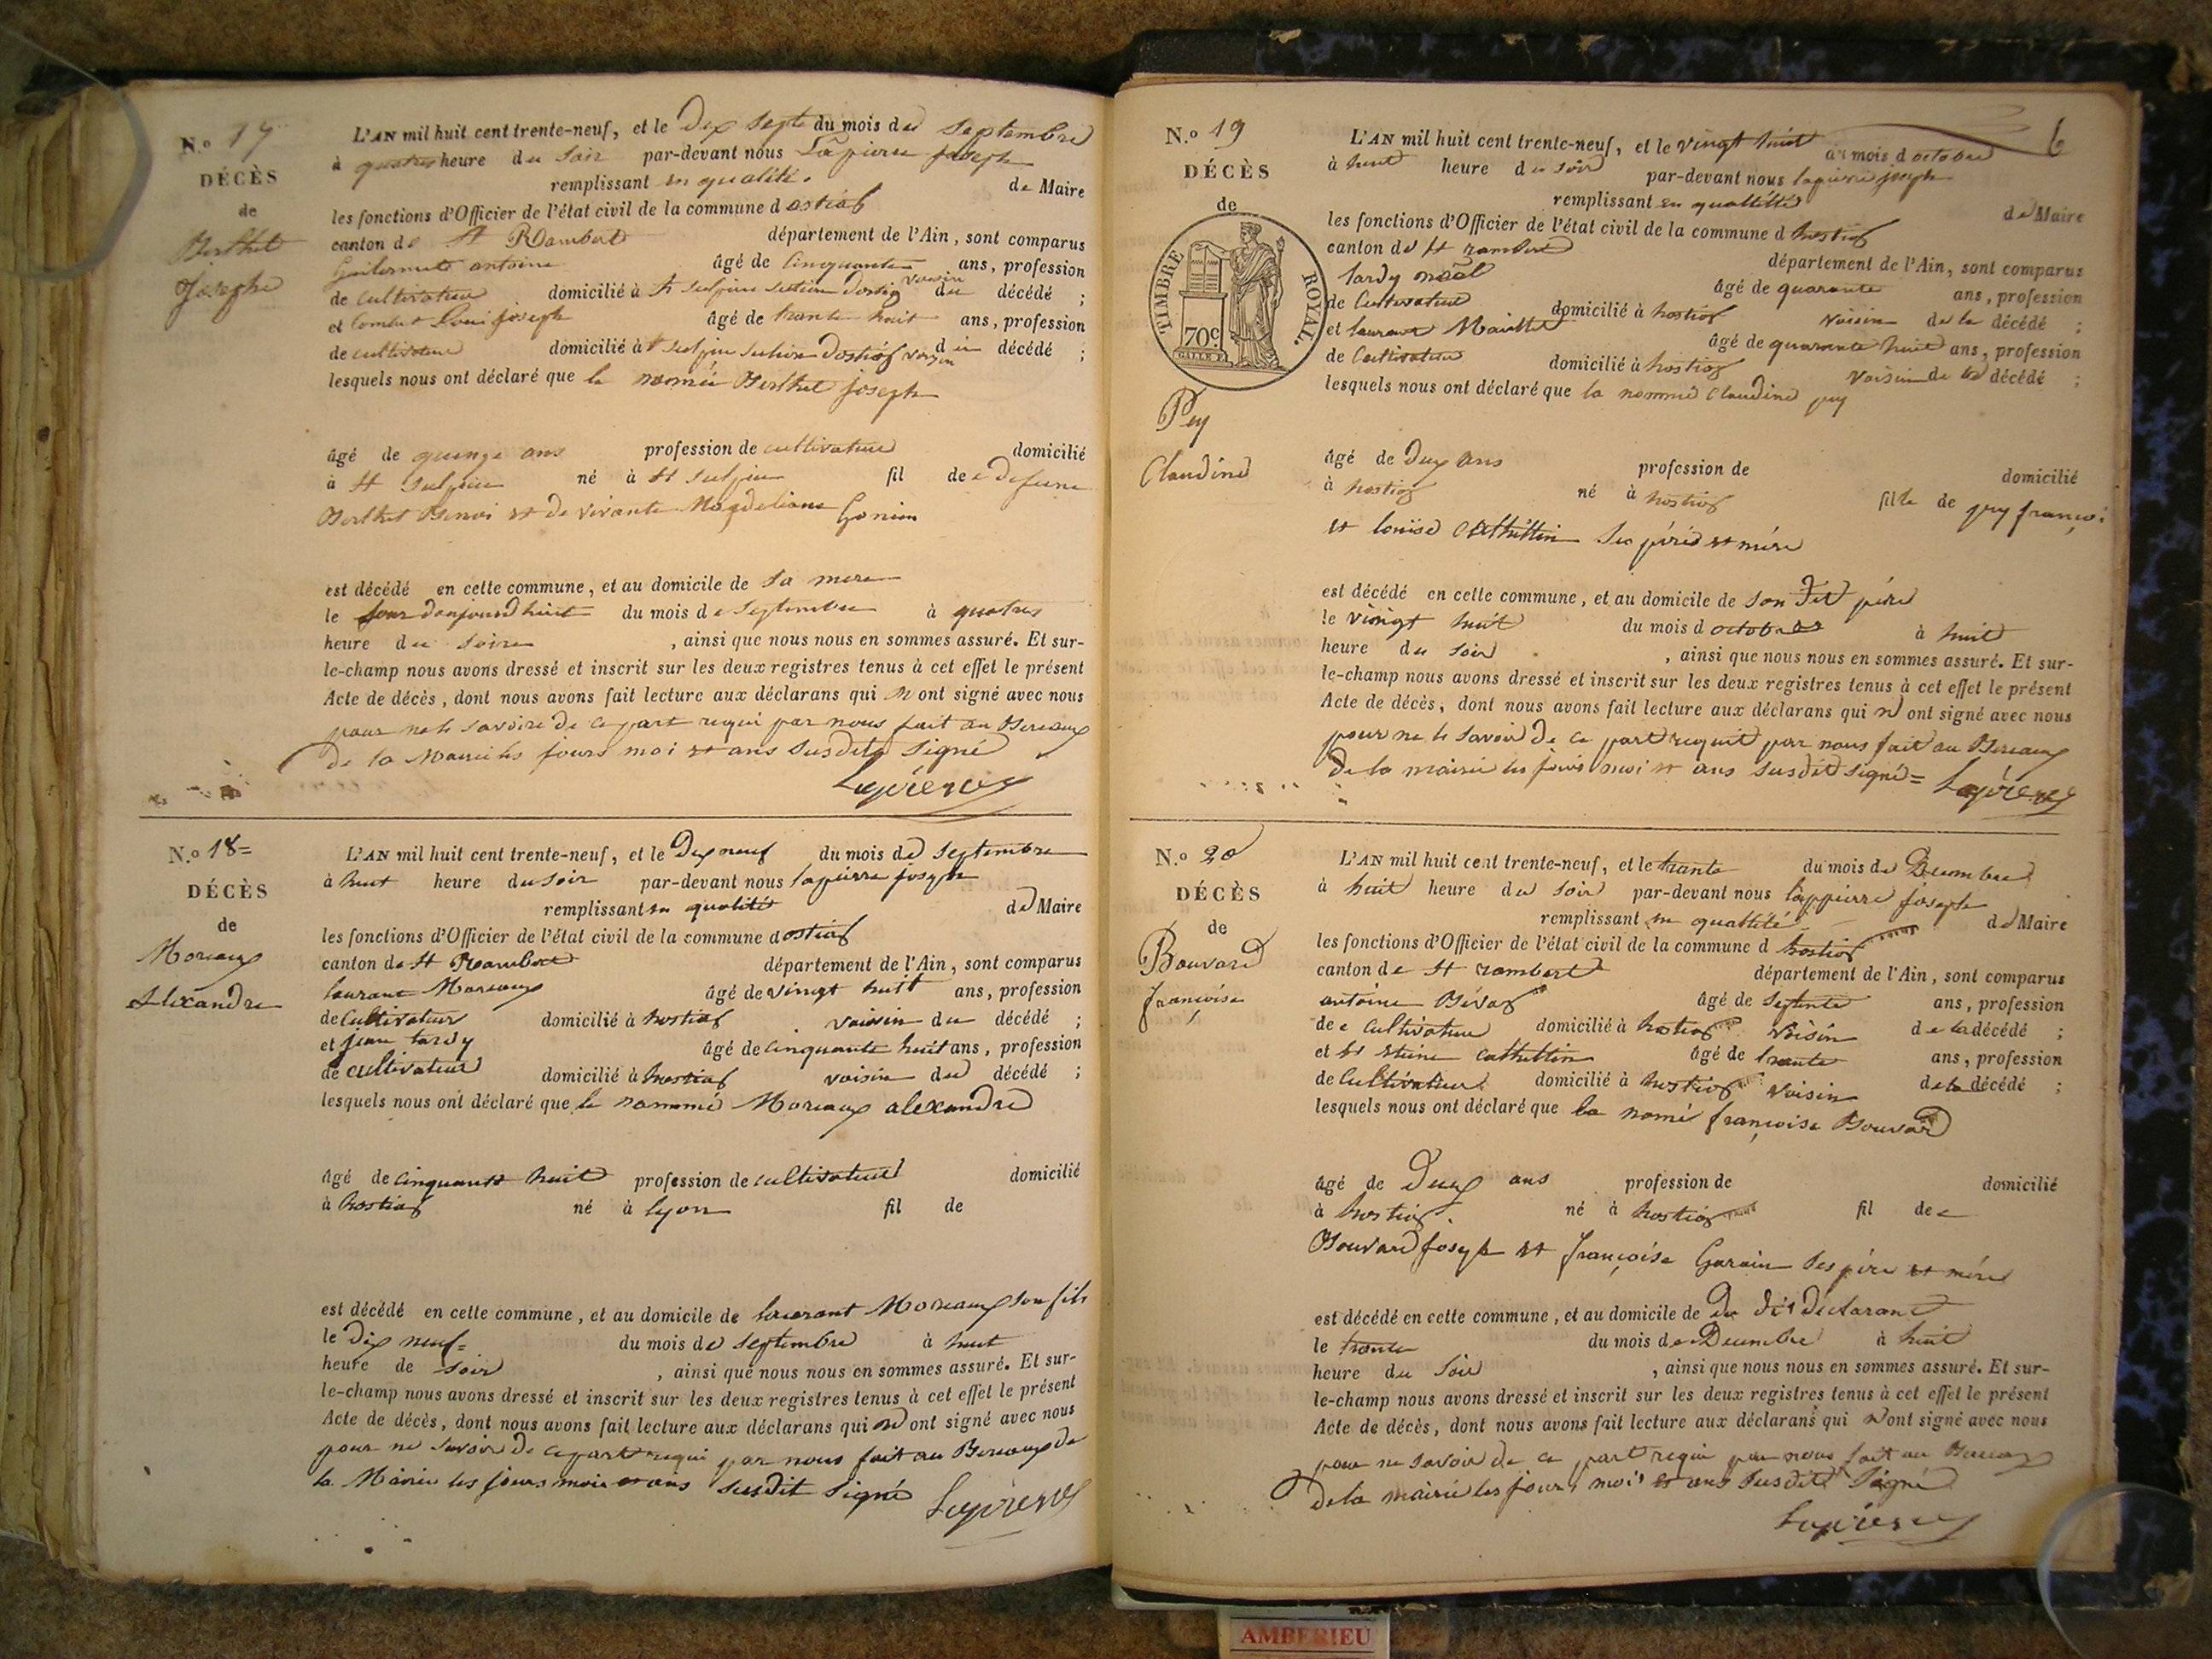 N.º 17
DÉCÈS
de
Berthet
Joseph
L'AN mil huit cent trente-neuf, et le Dix septe du mois de Septembre
à quatres heure du Soir par-devant nous Lapierre Joseph
remplissant en qualité. de Maire
les fonctions d'Officier de l'état civil de la commune d ostiaz
canton de St Rambert département de l'Ain, sont comparus
antoine âgé de Cinquante ans, profession
de Cultivateur domicilié à St Sulpice section voisin du décédé ;
et Combet Loui joseph âgé de trante huit ans, profession
de cultivateur domicilié à St Sulpice voisin du décédé ;
lesquels nous ont déclaré que le nomé Berthet joseph
âgé de quinze ans profession de cultivateur domicilié
à St Sulpice né à St Sulpice fil de
Berthet Benoi et de vivante Magdeliane Gonin
est décédé en cette commune, et au domicile de Sa mere
le du mois de Septembre à quatres
heure du Soire , ainsi que nous nous en sommes assuré. Et sur-
le-champ nous avons dressé et inscrit sur les deux registres tenus à cet effet le présent
Acte de décès, dont nous avons fait lecture aux déclarans qui n ont signé avec nous
pour ne le savoire de ce part requi par nous fait au Bereaux
de la Mairie les jours moi et ans susdits Signé
Lapierre
N.º 18=
DÉCÈS
de
Moreaux
Alexandre
L'AN mil huit cent trente-neuf, et le Dix neuf du mois de Septembre
à huit heure du soir par-devant nous lapierre joseph
remplissant en qualité de Maire
les fonctions d'Officier de l'état civil de la commune d ostiaz
canton de St Rambert département de l'Ain, sont comparus
laurant Moreaux âgé de vingt huit ans, profession
de Cultivateur domicilié à hostiaz voisin du décédé ;
et jean tardy âgé de cinquante huit ans, profession
de cultivateur domicilié à hostiaz voisin du décédé ;
lesquels nous ont déclaré que le nommé Moreaux alexandre
âgé de cinquante huit profession de cultivateur domicilié
à hostiaz né à lyon fil de
est décédé en cette commune, et au domicile de laurant Moreaux son fils
le Dix neuf= du mois de Septembre à huit
heure de soir , ainsi que nous nous en sommes assuré. Et sur-
le-champ nous avons dressé et inscrit sur les deux registres tenus à cet effet le présent
Acte de décès, dont nous avons fait lecture aux déclarans qui n ont signé avec nous
pour ne savoir de ce part requi par nous fait au Bereaux de
la Mairie les jours mois et ans susdit Signé Lapierre
6
N.º 19
DÉCÈS
de
TIMBRE ROYAL.
70c
Pey
Claudine
L'AN mil huit cent trente-neuf, et le vingt huit du mois d octobre
à huit heure du soir par-devant nous lapierre joseph
remplissant en quallitté de Maire
les fonctions d'Officier de l'état civil de la commune d hostiaz
canton de St rambert département de l'Ain, sont comparus
tardy noël âgé de quarante ans, profession
de Cultivateur domicilié à hostiaz voisin de la décédé ;
et laurant âgé de quarante huit ans, profession
de Cultivateur domicilié à hostiaz voisin de la décédé ;
lesquels nous ont déclaré que la nommé Claudine pey
âgé de Dux ans profession de domicilié
à hostiaz né à hostiaz fille de pey françoi
et louise Cathettin Ses père et mère
est décédé en cette commune, et au domicile de son dit père
le vingt huit du mois d octobre à huit
heure du soir , ainsi que nous nous en sommes assuré. Et sur-
le-champ nous avons dressé et inscrit sur les deux registres tenus à cet effet le présent
Acte de décès, dont nous avons fait lecture aux déclarans qui n ont signé avec nous
pour ne le savoir de ce part requit par nous fait au Bereaux
de la mairie les jours moi et ans susdit signé= Lapierre
N.º 20
DÉCÈS
de
Bouvard
françoise
L'AN mil huit cent trente-neuf, et le trante du mois de Decembre
à huit heure du soir par-devant nous lappierre joseph
remplissant en quallité de Maire
les fonctions d'Officier de l'état civil de la commune d hostiaz
canton de St rambert département de l'Ain, sont comparus
antoine âgé de septente ans, profession
de cultivateur domicilié à hostiaz voisin de la décédé ;
et cathettin âgé de trante ans, profession
de Cultivateur domicilié à hostiaz voisin de la décédé ;
lesquels nous ont déclaré que la nomé françoise Bouvard
âgé de Deux ans profession de domicilié
à hostiaz. né à hostiaz fil de
Bouvard joseph et françoise Garain Ses père et mère
est décédé en cette commune, et au domicile de Du dit déclarant
le trante du mois de Decembre à huit
heure du Soir , ainsi que nous nous en sommes assuré. Et sur-
le-champ nous avons dressé et inscrit sur les deux registres tenus à cet effet le présent
Acte de décès, dont nous avons fait lecture aux déclarans qui n'ont signé avec nous
pour ne savoir de ce part requi par nous fait au Bereaux
de la mairie les jours moi et ans susdit Signé
Lapierre
AMBERIEU